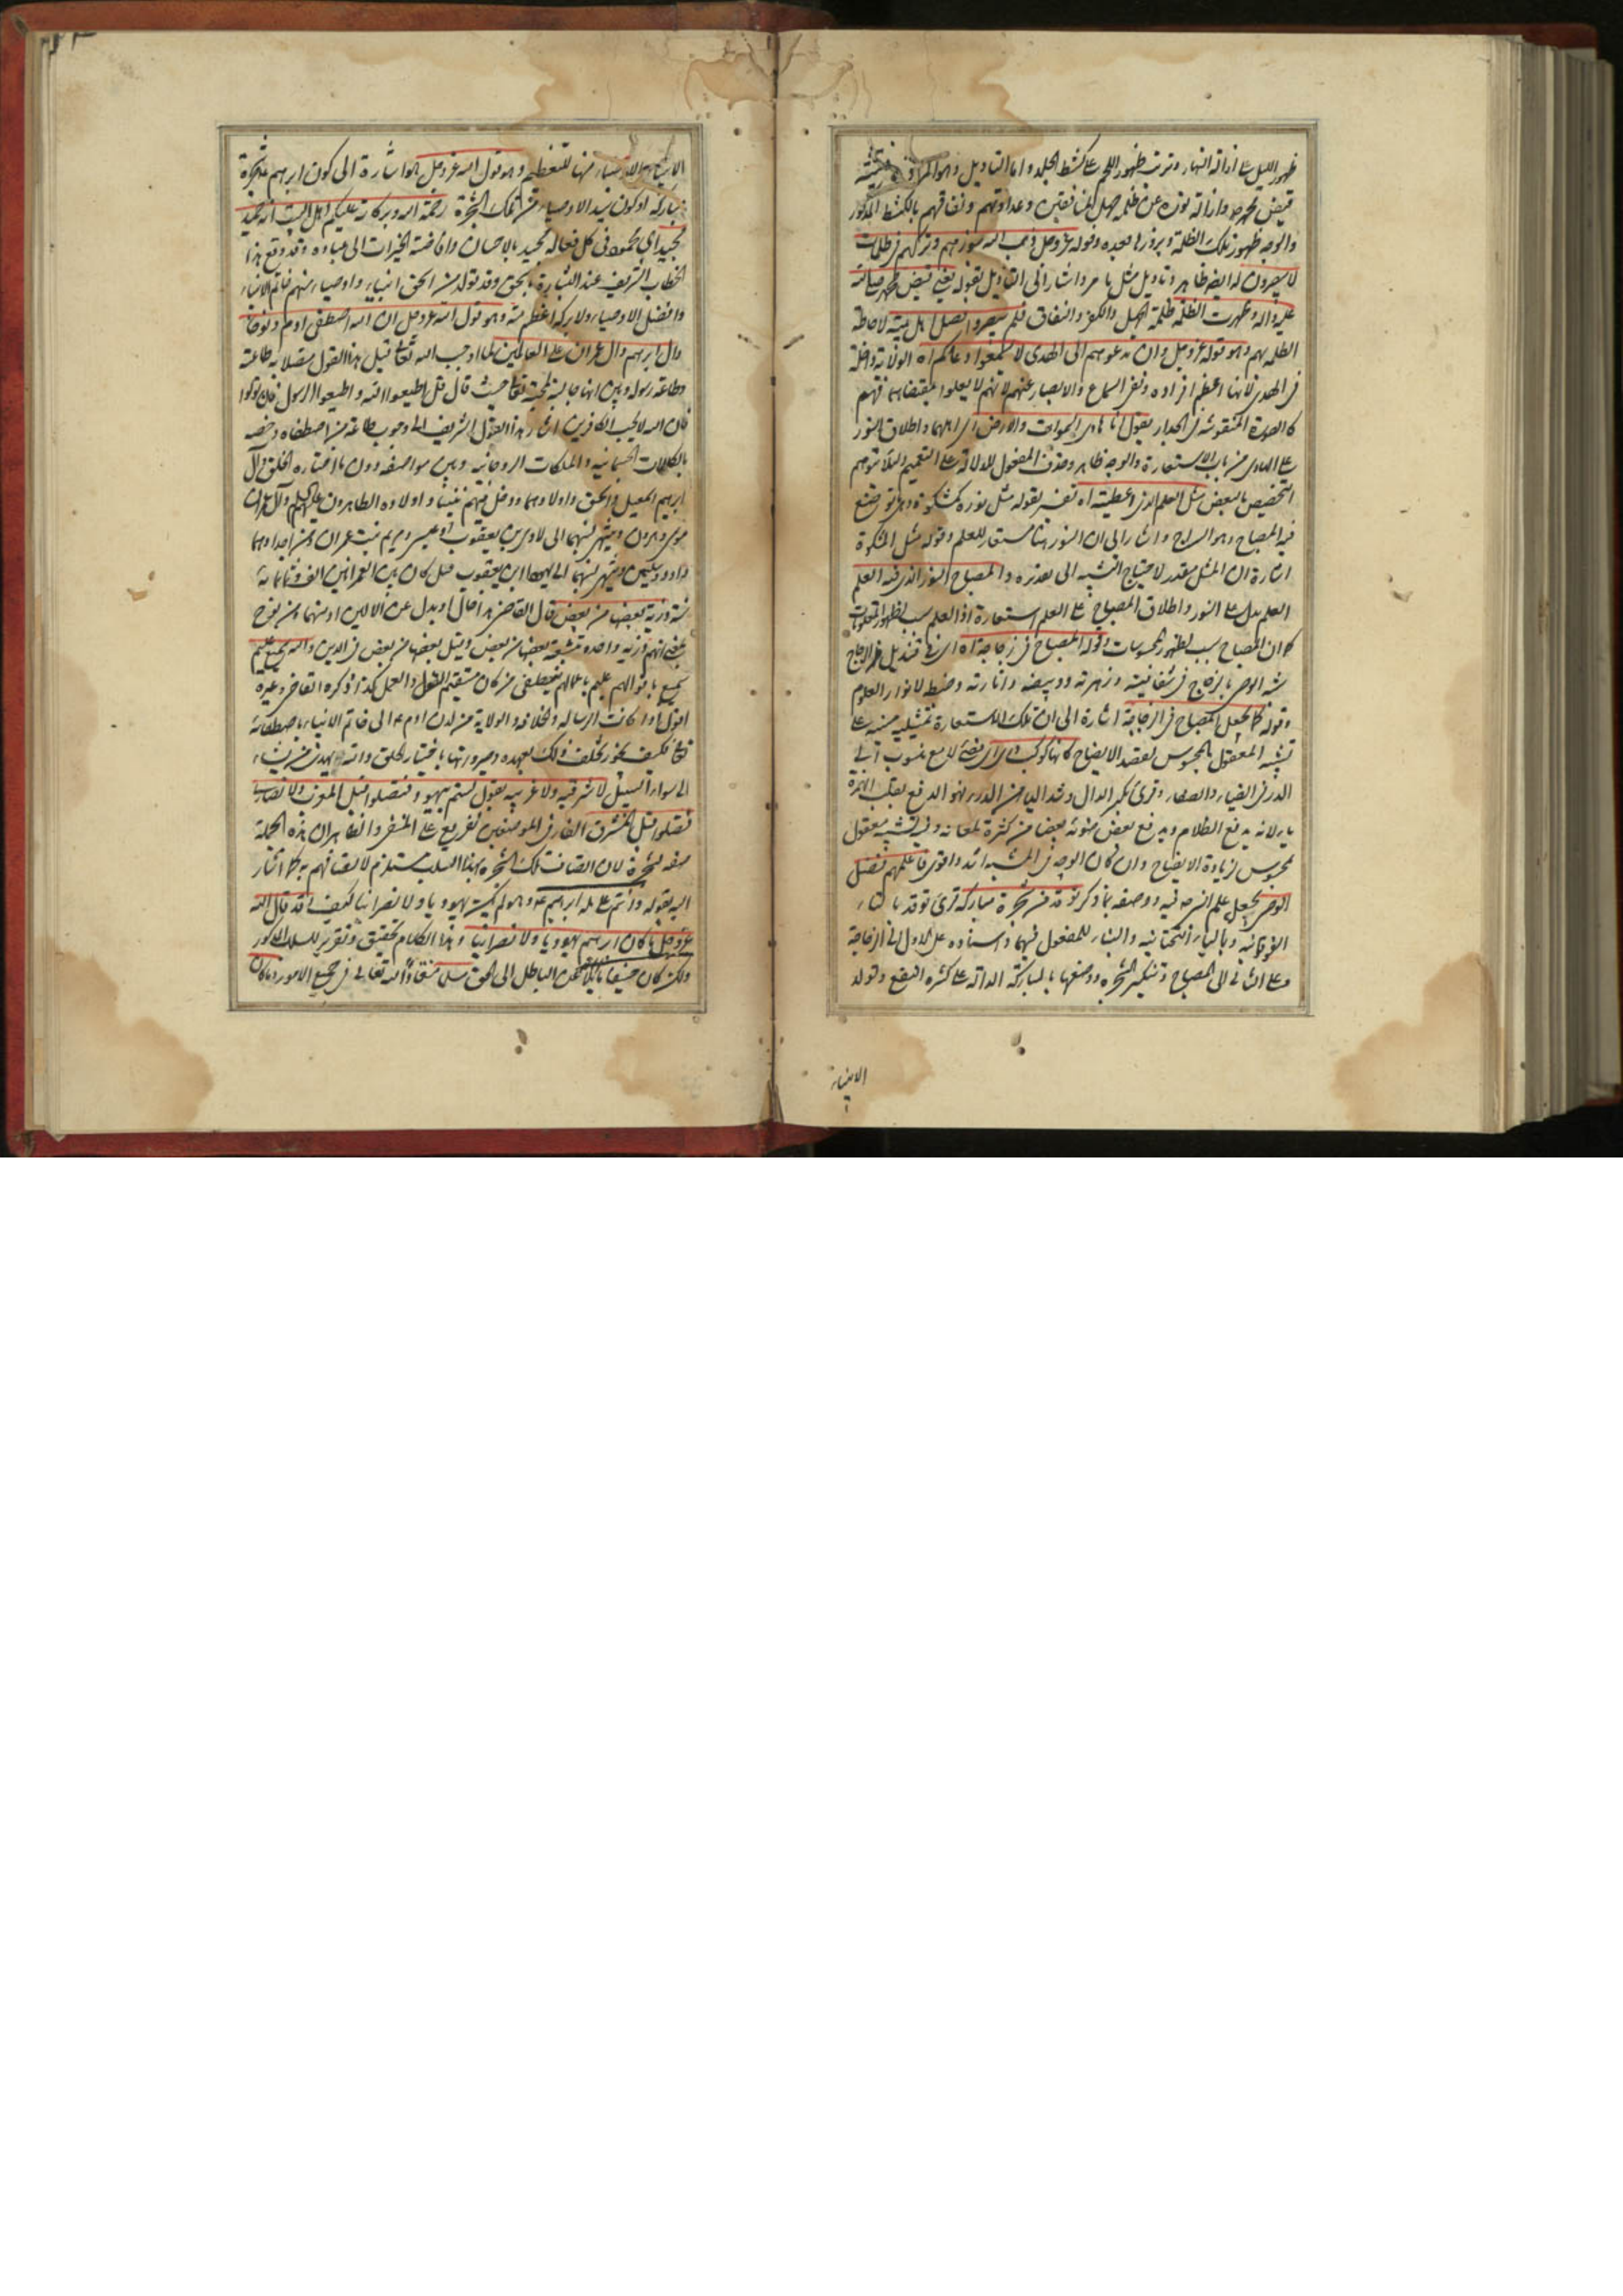 ظهور الليل على ازالة النهار وترتب ظهور اللحم على كشط الجلد واما التاويل وهو المراد
قبض محمد ص وازالة نوره عن ظلمة جهل المنافقين وعداوتهم ونفاقهم بالكشط المذكور
والوجه ظهور تلك الظلمة وبروزها بعده وقوله عز وجل ذهب الله بنورهم وتركهم في ظلمات
لا يبصرون له ايضا ظاهر وتاويل مثل ما مر واشار الى التاويل بقوله يعني قبض محمد صلى الله
عليه واله وظهرت الظلمة ظلمة الجهل والكفر والنفاق فلم يبصروا فضل اهل بيته لاحاطة
الظلمة بهم وهو قوله عز وجل وان تدعوهم الى الهدى لا يسمعوا دعاكم اه الولاية داخلة
في الهدى لانها اعظم افراده ونفى السماع والابصار عنهم لانهم لا يعملوا بمقتضاهما فهم
كالصورة المنقوشة في الجدار يقول انا هادى السموات والارض اى اهلهما واطلاق النور
على الهادى من باب الاستعارة والوجه ظاهر وحذف المفعول للدلالة على التعميم ولئلا يتوهم
التخصيص بالبعض مثل العلم الذي اعطيته اه تفسير لقوله مثل نوره كمشكوة
فيه المصباح وهو السراج واشار الى ان النور هنا مستعار للعلم وقوله مثل المشكوة
اشارة الى ان المثل مقدر لاحتياج التشبيه الى تقديره والمصباح النور الذي فيه العلم
العلم بدل على النور واطلاق المصباح على العلم استعارة اذ العلم سبب لظهور المعقولات
كما ان المصباح سبب لظهور المحسوسات وقوله المصباح في زجاجة اه اى في قنديل من الزجاج
شبه الوصى بالزجاج في شفافيته وزهرته ووميضه وانارته وضبط لانوار العلوم
وقوله كما يجعل المصباح في الزجاجة اشارة الى ان تلك الاستعارة تمثيلية مبنية على
تشبيه المعقول بالمحسوس لقصد الايضاح كانها كوكب درى اى مضئ لامع منسوب الى
الدر في الضياء والصفاء وقرئ بكسر الدال وشد الياء من الدرء بهو الدفع بقلب الهمزة
ياء لانه يدفع الظلام ويدفع بعض ضوئه بعضا من كثرة لمعانه وفيه تشبيه معقول
بمحسوس لزيادة الايضاح وان كان الوجه في المشبه اشد واقوى فاعلمهم فضل
الوصى يجعل علم النبي فيه ووصفه بما ذكر توقد من شجرة مباركة قرئ توقد بالتاء
الفوقانية وبالياء التحتانية والبناء للمفعول فيهما واسناده على الاول الى الزجاجة
وعلى الثاني الى المصباح وتنكير الشجرة ووصفها بالمباركة الدالة على كثرة النفع وتولد
الانبياء
الانبياء والاوصياء منها للتعظيم وهو قول الله عز وجل هو اشارة الى كون ابرهيم شجرة
مباركة او كون سيد الاوصياء من تلك الشجرة رحمة الله وبركاته عليكم اهل البيت انه حميد
مجيد اى محمود في كل فعاله مجيد بالاحسان وافاضة الخيرات الى عباده وقد وقع هذا
الخطاب الشريف عند البشارة باسحق وقد تولد من اسحق انبياء واوصياء منهم خاتم الانبياء
وافضل الاوصياء ولا بركة اعظم منه وهو قول الله عز وجل ان الله اصطفى ادم ونوحا
وال ابرهيم وال عمران على العالمين لما اوجب الله تعالى قبل هذا القول متصلا به طاعته
وطاعة رسوله وبين انها جالبة لمحبته تعالى حيث قال قل اطيعوا الله واطيعوا الرسول فان تولوا
فان الله لا يحب الكافرين اشار بهذا القول الشريف الى وجوب طاعة من اصطفاه وخصه
بالكمالات الجسمانية والملكات الروحانية وبين مواضعه دون ما اختاره الخلق فال
ابرهيم اسمعيل واسحق واولادهما ودخل فيهم نبينا واولاده الطاهرون عليهم السلام وال عمران
موسى وهرون وينتهى نسبهما الى لاوى بن يعقوب او عيسى ومريم بنت عمران ومن اجدادهما
داود وسليمن وينتهى نسبهما الى يهودا ابن يعقوب قيل كان بين العمرانين الف وثمانمائة
سنة ذرية بعضها من بعض قال القاضى هذا حال او بدل عن الالين او منهما ومن نوح
يعنى انهم ذرية واحدة متشعبة بعضها من بعض وقيل بعضها من بعض في الدين والله سميع عليم
سميع باقوالهم عليم باعمالهم فيصطفى من كان مستقيم القول والعمل كذا ذكره القاضى وغيره
اقول اذا كانت الرسالة والخلافة والولاية من لدن ادم ع الى خاتم الانبياء باصطفائه
تعالى فكيف يجوز تخلف ذلك بعهده وصيرورتها باختيار الخلق والله يهدى من يشاء
الى سواء السبيل لا شرقية ولا غربية يقول لستم بيهود فتصلوا قبل المغرب ولا نصارى
فتصلوا قبل المشرق الفاء في الموضعين تفريع على المنفى والظاهر ان هذه الجملة
صفة لشجرة لان اتصاف تلك الشجرة بهذا السلب مستلزم لاتصافهم به كما اشار
اليه بقوله وانتم على ملة ابرهيم ع وهو لم يكن يهوديا ولا نصرانيا كيف وقد قال الله
عز وجل ما كان ابرهيم يهوديا ولا نصرانيا وهذا الكلام تحقيق وتقرير للسلب المذكور
ولكن كان حنيفا مائلا عن الباطل الى الحق مسلما منقادا لله تعالى في جميع الامور وما كان